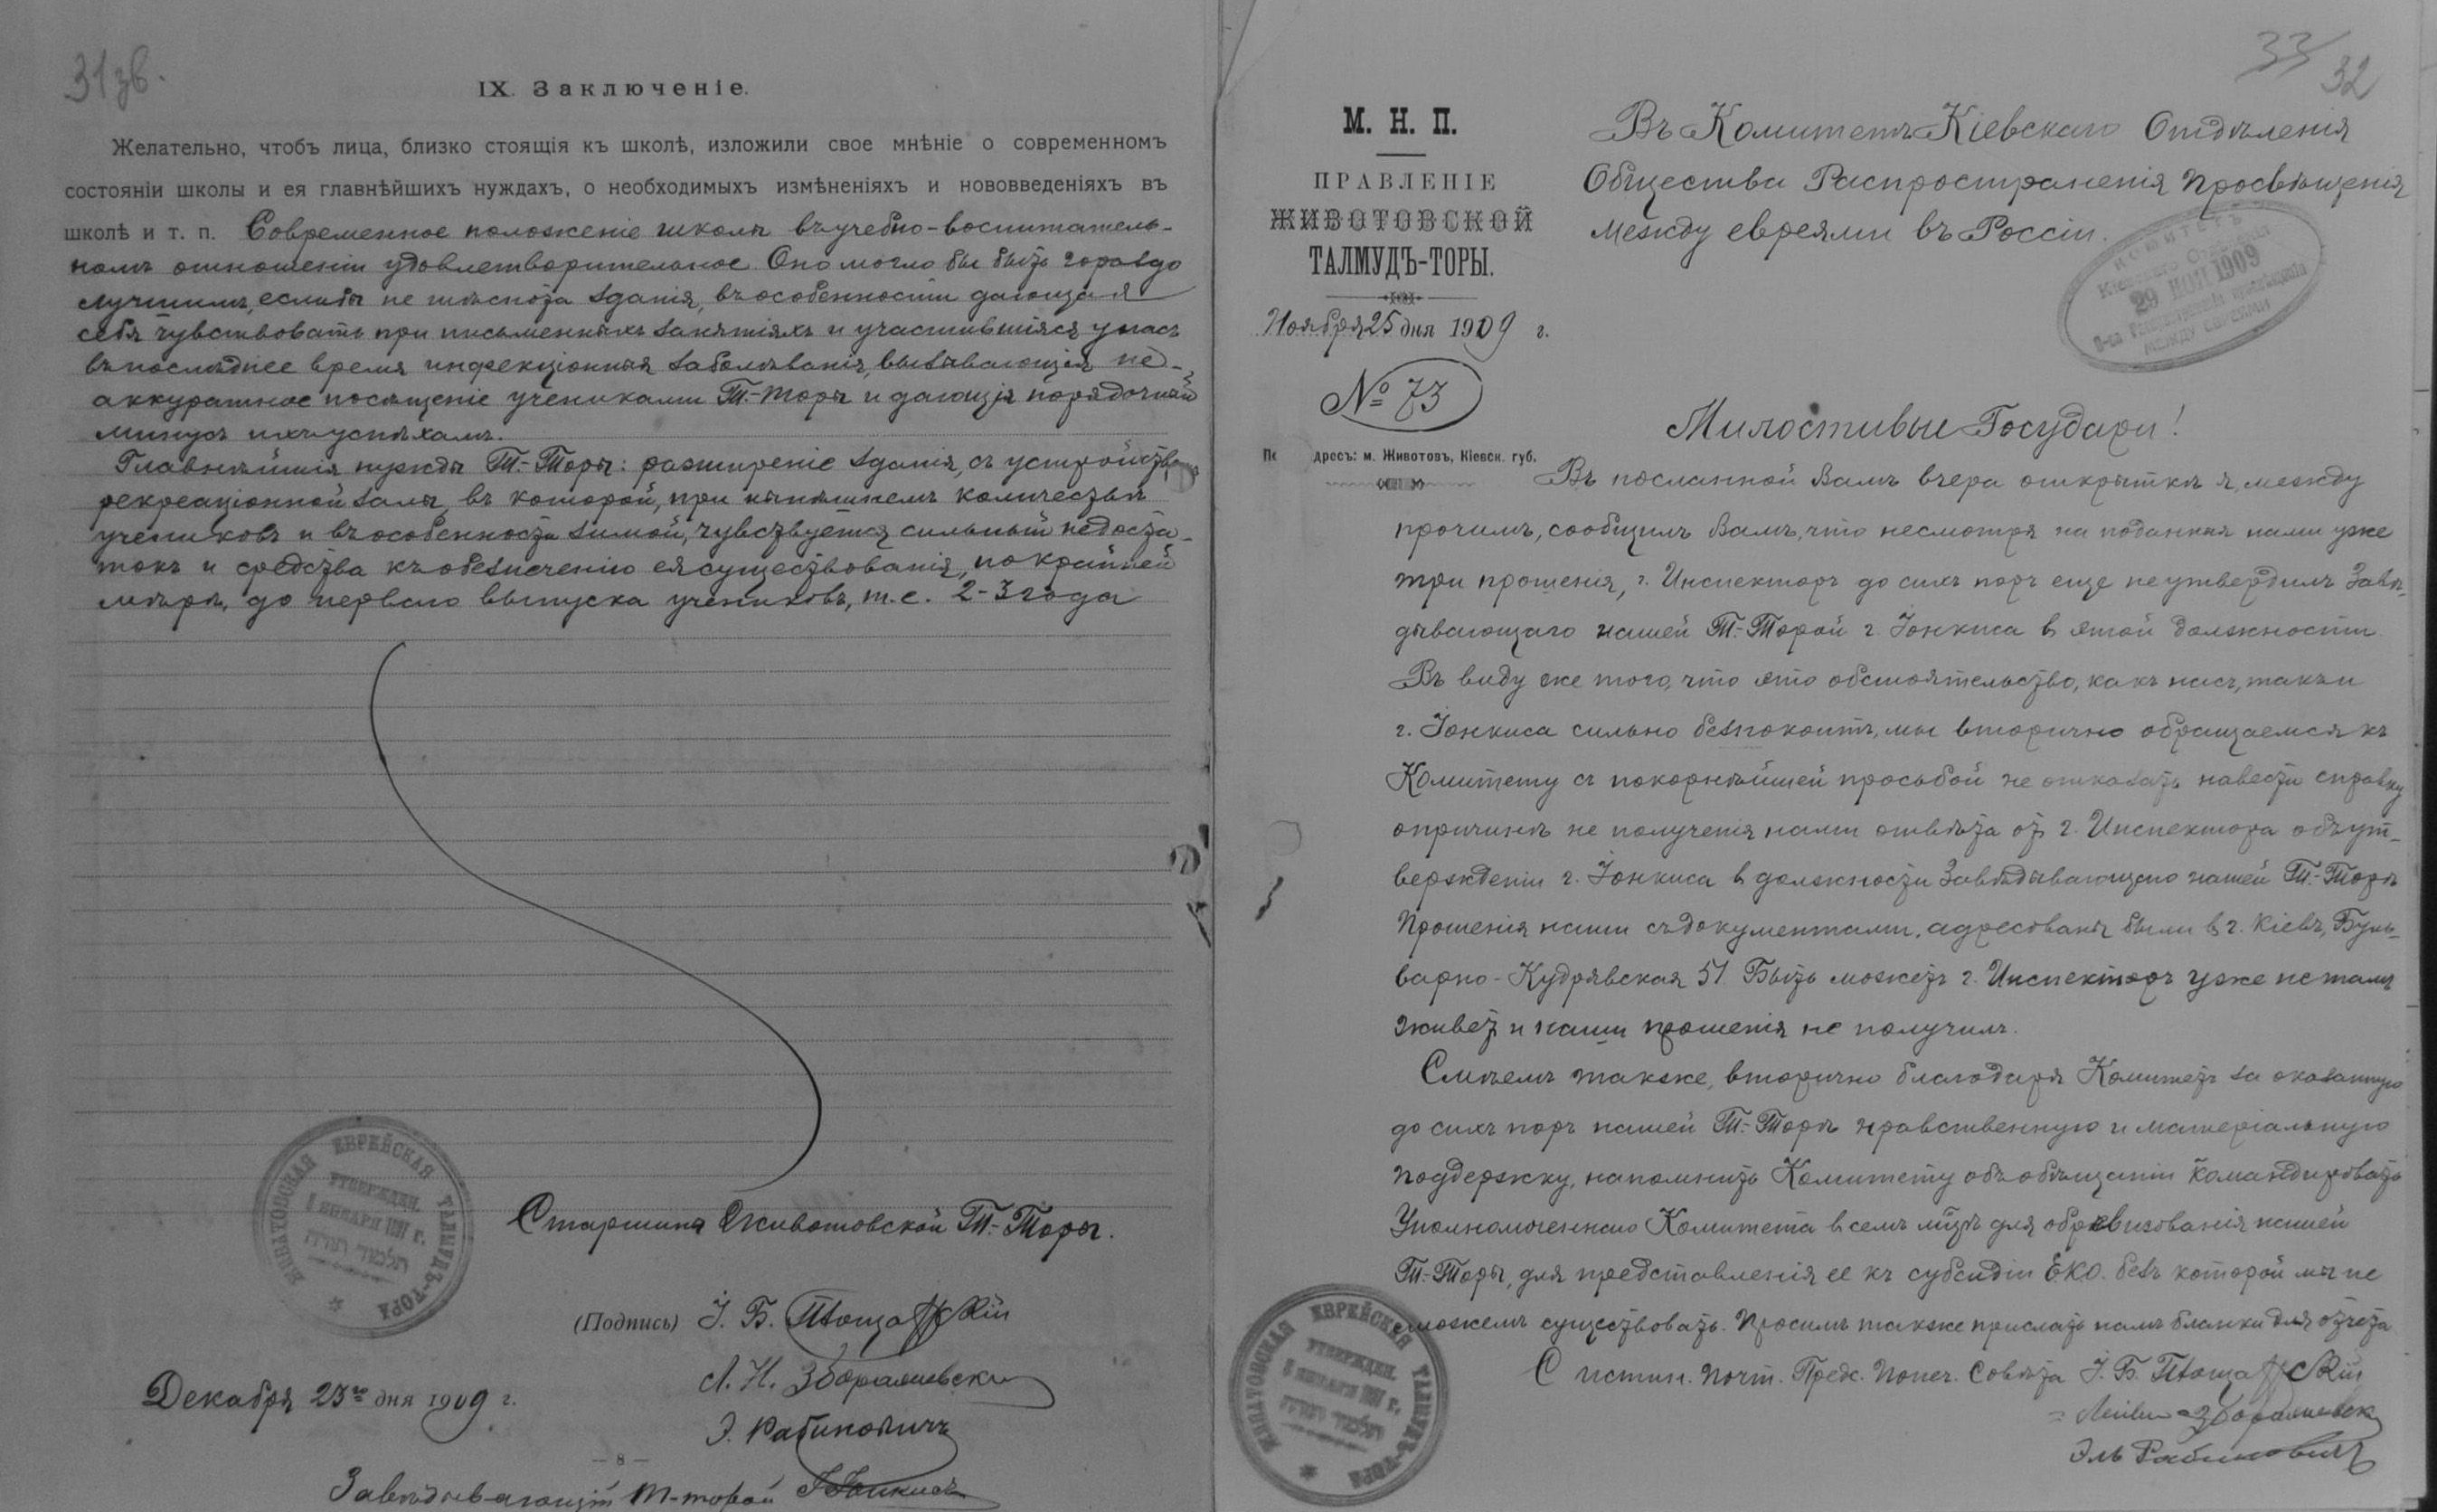 31 зв.
IX. Заключеніе.
Желательно, чтобъ лица, близко стоящія къ школѣ, изложили свое мнѣніе о современномъ
состояніи школы и ея главнѣйшихъ нуждахъ, о необходимыхъ измѣненіяхъ и нововведеніяхъ въ
школѣ и т. п. Современное положеніе школы въ учебно-воспитатель-
номъ отношеніи удовлетворительное Оно могло бы быть гораздо
лучшимъ, еслибы не тѣснота зданія, въ особенности дающая
себя чувствовать при письменныхъ занятіяхъ и участившіяся у насъ
въ послѣднее время инфекціонныя заболѣванія, вызывающія не-
аккуратное посѣщеніе учениками Т.-Торы и дающія порядочный
минусъ ихъ успѣхамъ.
Главнѣйшія нужды Т.-Торы: расширеніе зданія, съ устройствомъ
рекреаціонной залы, въ которой, при нынѣшнемъ количествѣ
учениковъ и въ особенности зимой, чувствуется сильный недоста-
токъ и средства къ обезпеченію ея существованія, по крайней
мѣрѣ, до перваго выпуска учениковъ, т.е. 2-3 года
ЖИВАТОВСКАЯ ЕВРЕЙСКАЯ ТАЛМУДЪ-ТОРА
УТВЕРЖДЕН.
ЯНВАРЯ
תלמוד תורה
Старшина Животовской Т.-Торы.
(Подпись) І. Б.
Л. Н. Збаражевскій
Э. Рабиновичъ
Декабря 23го дня 1909 г.
— 8 —
Завѣдывающій Т-торой І. Іонкисъ
33 32
М. Н. П.
ПРАВЛЕНІЕ
ЖИВОТОВСКОЙ
ТАЛМУДЪ-ТОРЫ.
Ноября 25 дня 1909 г.
№ 73
дресъ: м. Животовъ, Кіевск. губ.
Въ Комитетъ Кіевскаго Отдѣленія
Общества Распространенія Просвѣщенія
между евреями въ Россіи.
КОМИТЕТЪ
Кіевскаго Отдѣленія
29 НОЯ 1909
О-ва Распространенія просвѣщенія
МЕЖДУ ЕВРЕЯМИ
Милостивые Государи!
Въ посланной Вамъ вчера открыткѣ я, между
прочимъ, сообщилъ Вамъ, что несмотря на поданныя нами уже
три прошенія, г. Инспекторъ до сихъ поръ еще не утвердилъ Завѣ-
дывающаго нашей Т.-Торой г. Іонкиса в этой должности
Въ виду же того, что это обстоятельство, какъ насъ, такъ и
г. Іонкиса сильно безпокоитъ, мы вторично обращаемся къ
Комитету съ покорнѣйшей просьбой не отказать навести справку
о причинѣ не полученія нами отвѣта от г. Инспектора объ ут-
вержденіи г. Іонкиса в должности Завѣдывающаго нашей Т.-Торы
Прошенія наши съ документами, адресованы были в г. Кіевъ, Буль-
варно-Кудрявская 51. Быть можетъ г. Инспекторъ уже не тамъ
живетъ и наши прошенія не получилъ.
Смѣемъ также, вторично благодаря Комитетъ за оказанную
до сихъ поръ нашей Т.-Торѣ нравственную и матеріальную
поддержку, напомнить Комитету объ обѣщаніи командировать
Уполномоченнаго Комитета в семъ м-цѣ для обревизованія нашей
Т.-Торы, для представленія ее къ субсидіи ЕКО. безъ которой мы не
можемъ существовать. Просимъ также прислать намъ бланки для отчета
С истин. почт. Пред. Попеч. Совѣта І. Б.
Лейви Збаражевск
Эль Рабиновичъ
ЖИВАТОВСКАЯ ЕВРЕЙСКАЯ ТАЛМУДЪ-ТОРА
УТВЕРЖДЕН.
ЯНВАРЯ
תלמוד תורה